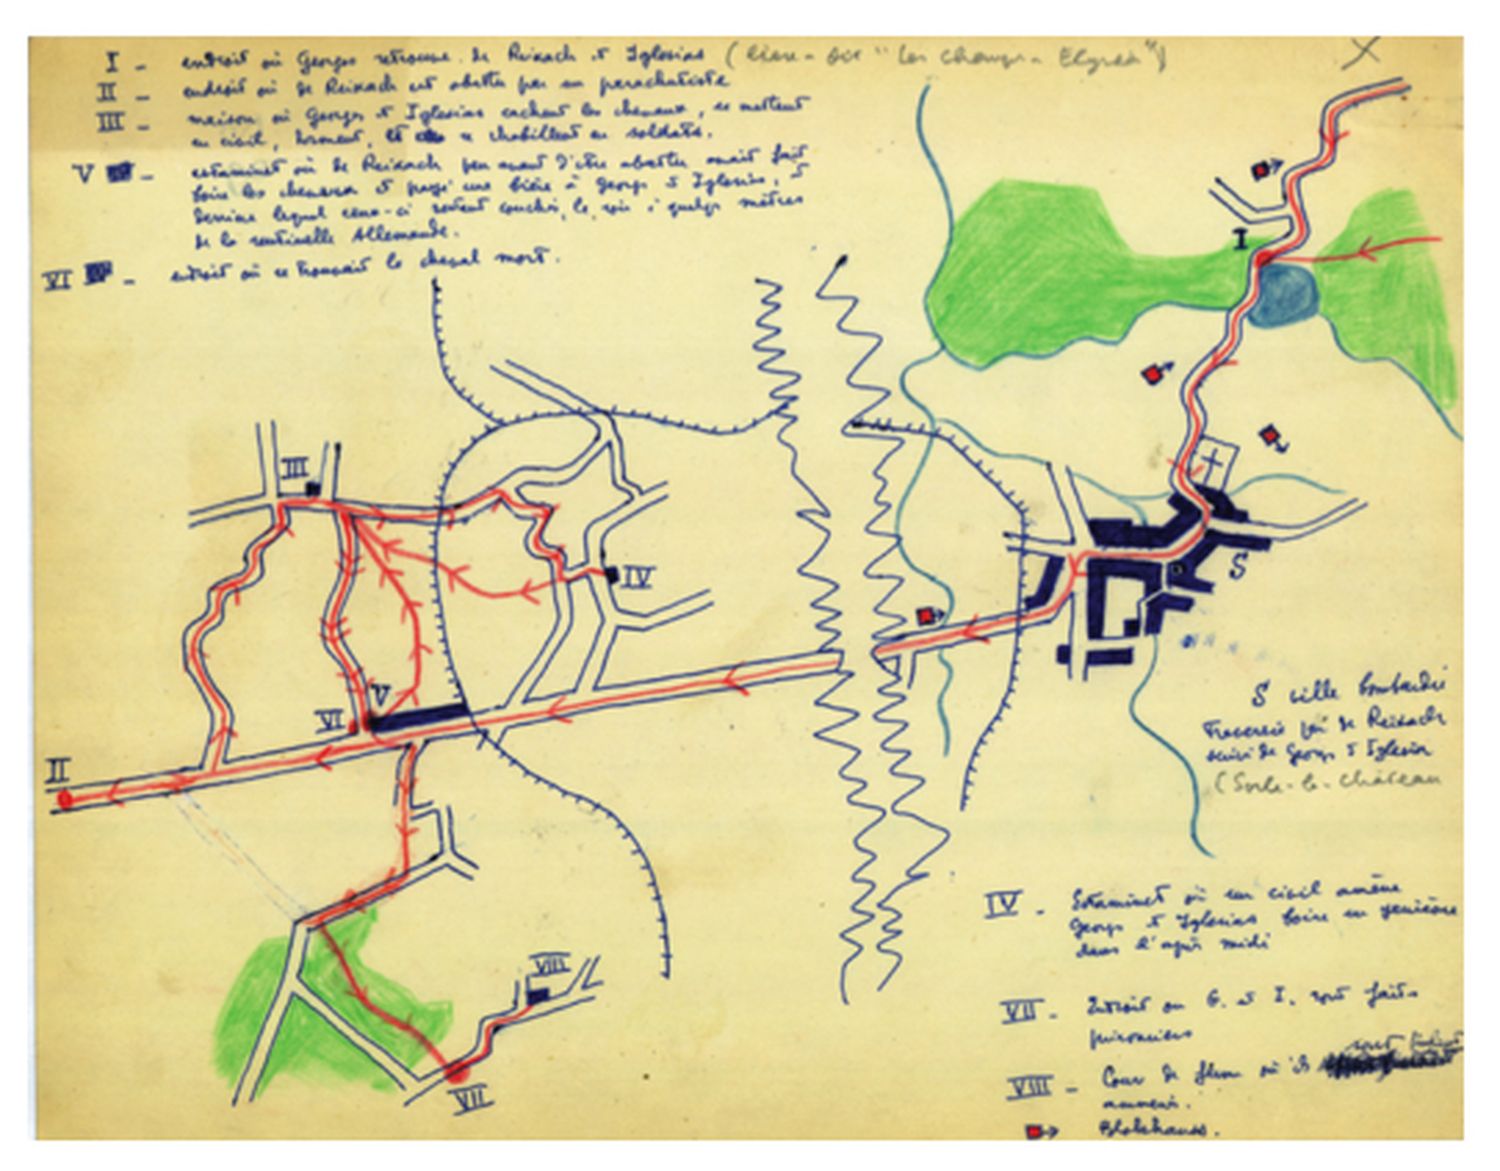 I - endroit où Georges retrouve de Reixach et Iglésias (lieu-dit "les Champs-Elysées")
II - endroit où de Reixach est abattu par un parachutiste
III - maison où Georges et Iglésias cachent les chevaux, se mettent
en civil, dorment, et se rhabillent en soldats.
V - estaminet où de Reixach peu avant d'être abattu avait fait
boire les chevaux et payé une bière à Georges et Iglésias, et
derrière lequel ceux-ci restent couchés, le soir à quelques mètres
de la sentinelle Allemande.
VI - endroit où se trouvait le cheval mort.
X
I
III
IV
S
V
VI
II
S ville bombardée
traversée par de Reixach
suivi de Georges et Iglésia
(Solre-le-Château
IV - Estaminet où un civil amène
Georges et Iglésias boire un genièvre
dans l'après midi
VIII
VII - Endroit où G. et I. sont faits
prisonniers
VIII - Cour de ferme où ils sont
amenés.
VII
Blockhauss.